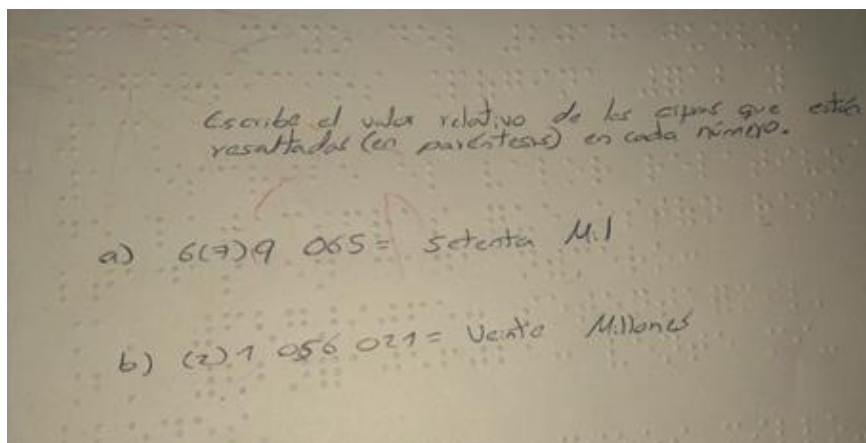 Escribe el valor relativo de las cifras que están
resaltadas (en paréntesis) en cada número.
a) 6(7)9 065 = Setenta Mil
b) (2)1 056 021 = Veinte Millones